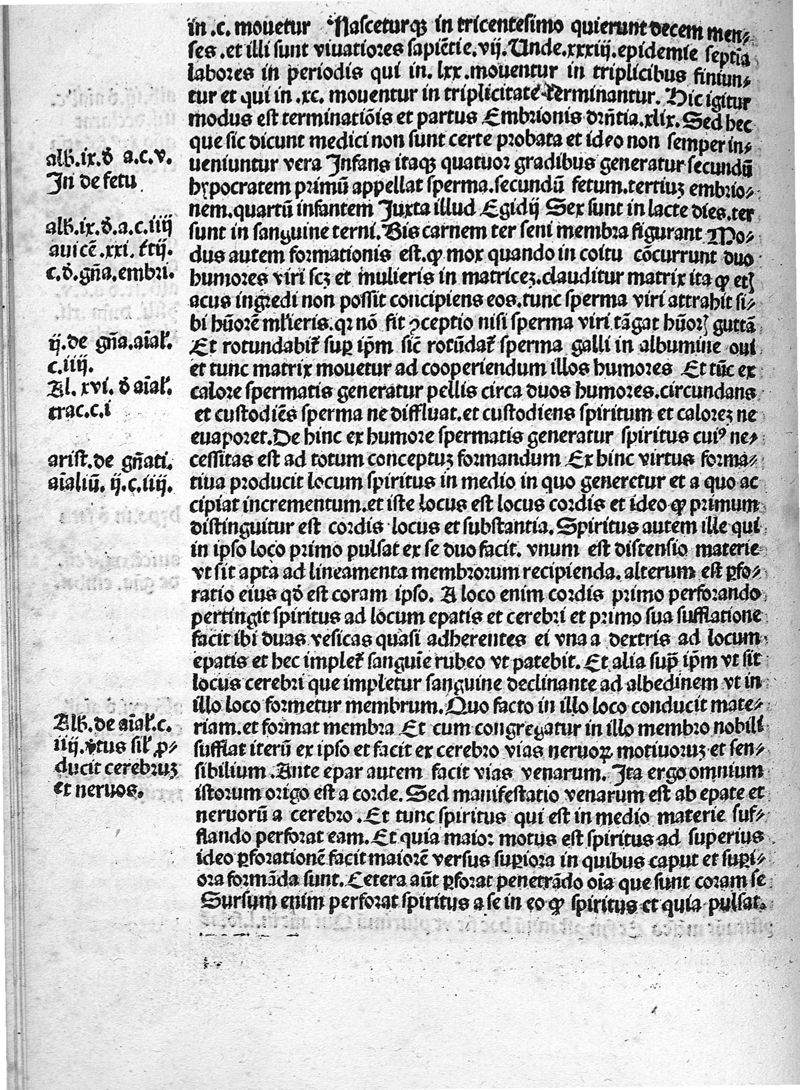 in .c. mouetur Nasceturqʒ in tricentesimo quierunt decem men⸗
ses .et illi sunt viuatiores sapiẽtie. vij. Unde .xxxiij. epidemie septia
labores in periodis qui in. lxx .mouentur in triplicibus finiun⸗
tur et qui in .xc. mouentur in triplicitate terminantur. Hic igitur
modus est terminatiõis et partus Embrionis drñtia .xlix. Sed hec
que sic dicunt medici non sunt certe probata et ideo non semper in⸗
alb. ix. đ a.c.v.
ueniuntur vera Infans itaqʒ quatuor gradibus generatur secundũ
In de fetu
hypocratem primũ appellat sperma. secundũ fetum. tertiuʒ embrio⸗
nem. quartũ infantem Juxta illud Egidij Sex sunt in lacte dies. ter
alb. ix. đ. a.c. iiij
sunt in sanguine terni. Bis carnem ter seni membra figurant Mo⸗
auicẽ .xxi. t̃ij.
dus autem formationis est. ꝙ mox quando in coitu cõcurrunt duo
c. đ. gña. embri.
humores viri scʒ et mulieris in matriceʒ. clauditur matrix ita ꝙ etʒ
acus ingredi non possit concipiens eos. tunc sperma viri attrahit si⸗
bi hũorẽ ml̃ieris. qꝛ nõ fit ꝯceptio nisi sperma viri tãgat hũoꝝ guttã
ij. de gña. aial̃.
Et rotundabit̃ sup̱ ip̃m sic̃ rotũdat̃ sperma galli in albumine oui
c. iiij.
et tunc matrix mouetur ad cooperiendum illos humores Et tũc ex
Al. xvi. đ aial̃.
calore spermatis generatur pellis circa duos humores. circundans
trac. c. i
et custodiẽs sperma ne diffluat. et custodiens spiritum et caloreʒ ne
euaporet. De hinc ex humore spermatis generatur spiritus cuiꝰ ne⸗
arist. de gñati.
cessitas est ad totum conceptuʒ formandum Ex hinc virtus forma⸗
aialiũ. ij. c. iiij.
tiua producit locum spiritus in medio in quo generetur et a quo ac
cipiat incrementum. et iste locus est locus cordis et ideo ꝙ primum
distinguitur est cordis locus et substantia. Spiritus autem ille qui
in ipso loco primo pulsat ex se duo facit. vnum est distensio materie
vt sit apta ad lineamenta membrorum recipienda. alterum est ꝑfo⸗
ratio eius qđ est coram ipso. A loco enim cordis primo perforando
pertingit spiritus ad locum epatis et cerebri et primo sua sufflatione
facit ibi duas vesicas quasi adherentes ei vna a dextris ad locum
epatis et hec implet̃ sanguie rubeo vt patebit. Et alia sup̱ ip̃m vt sit
locus cerebri que impletur sanguine declinante ad albedinem vt in
illo loco formetur membrum. Quo facto in illo loco conducit mate⸗
Alb. de aial̃. c.
riam. et format membra Et cum congregatur in illo membro nobili
iiij. v̾tus sil̃ ꝓ⸗
sufflat iterũ ex ipso et facit ex cerebro vias neruoꝝ motiuoruʒ et sen⸗
ducit cerebruʒ
sibilium. Ante epar autem facit vias venarum. Ita ergo omnium
et neruos.
istorum origo est a corde. Sed manifestatio venarum est ab epate et
neruorũ a cerebro. Et tunc spiritus qui est in medio materie suf⸗
flando perforat eam. Et quia maior motus est spiritus ad superius
ideo ꝑforationẽ facit maiorẽ versus sup̱iora in quibus caput et sup̱i⸗
ora formãda sunt. Cetera aũt ꝑforat penetrãdo oĩa que sunt coram se
Sursum enim perforat spiritus a se in eo ꝙ spiritus et quia pulsat.